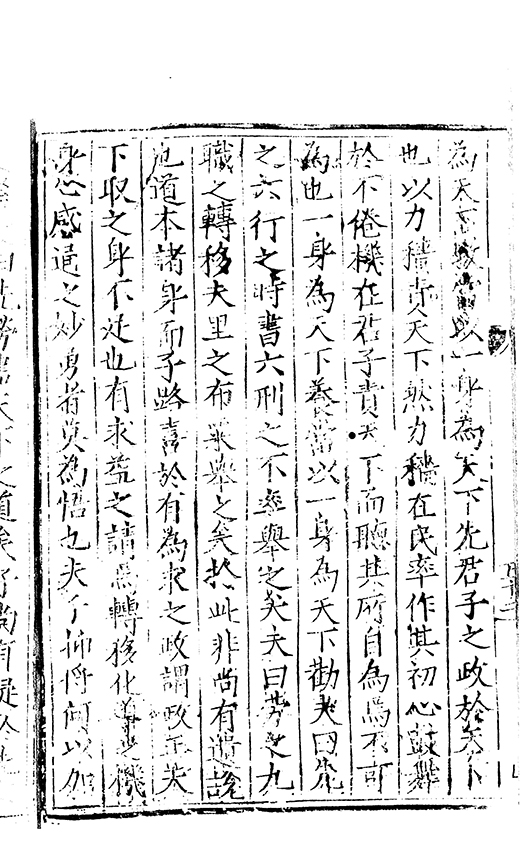 為天下敎當以一身為天下先君子之政於天下
也以力穡責天下然力穡在民率作其初心鼓舞
於不倦機在君子責天下而聽其所自為焉不可
為也一身為天下養當以一身為天下勸夫曰先
之六行之時書六刑之不率舉之矣夫曰勞之九
職之轉移夫里之布衆舉之矣於此非尚有遺說
也道本諸身而子路喜於有為求之政謂政至夫
下取之身不延也有求益之請焉轉移化導之機
身心感通之妙勇者莫為悟也夫子抑將何以加